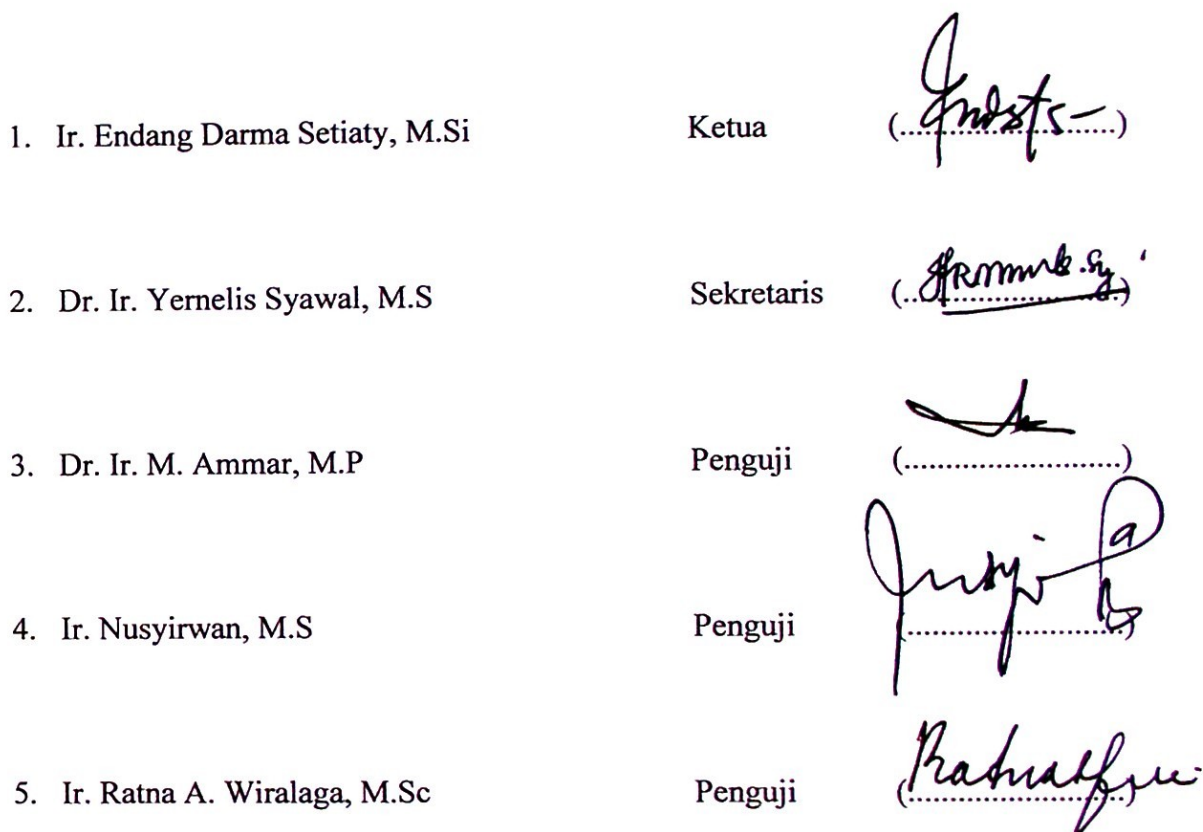 1. Ir. Endang Darma Setiaty, M.Si Ketua (........................)
2. Dr. Ir. Yernelis Syawal, M.S Sekretaris (........................)
3. Dr. Ir. M. Ammar, M.P Penguji (........................)
4. Ir. Nusyirwan, M.S Penguji (........................)
5. Ir. Ratna A. Wiralaga, M.Sc Penguji (........................)